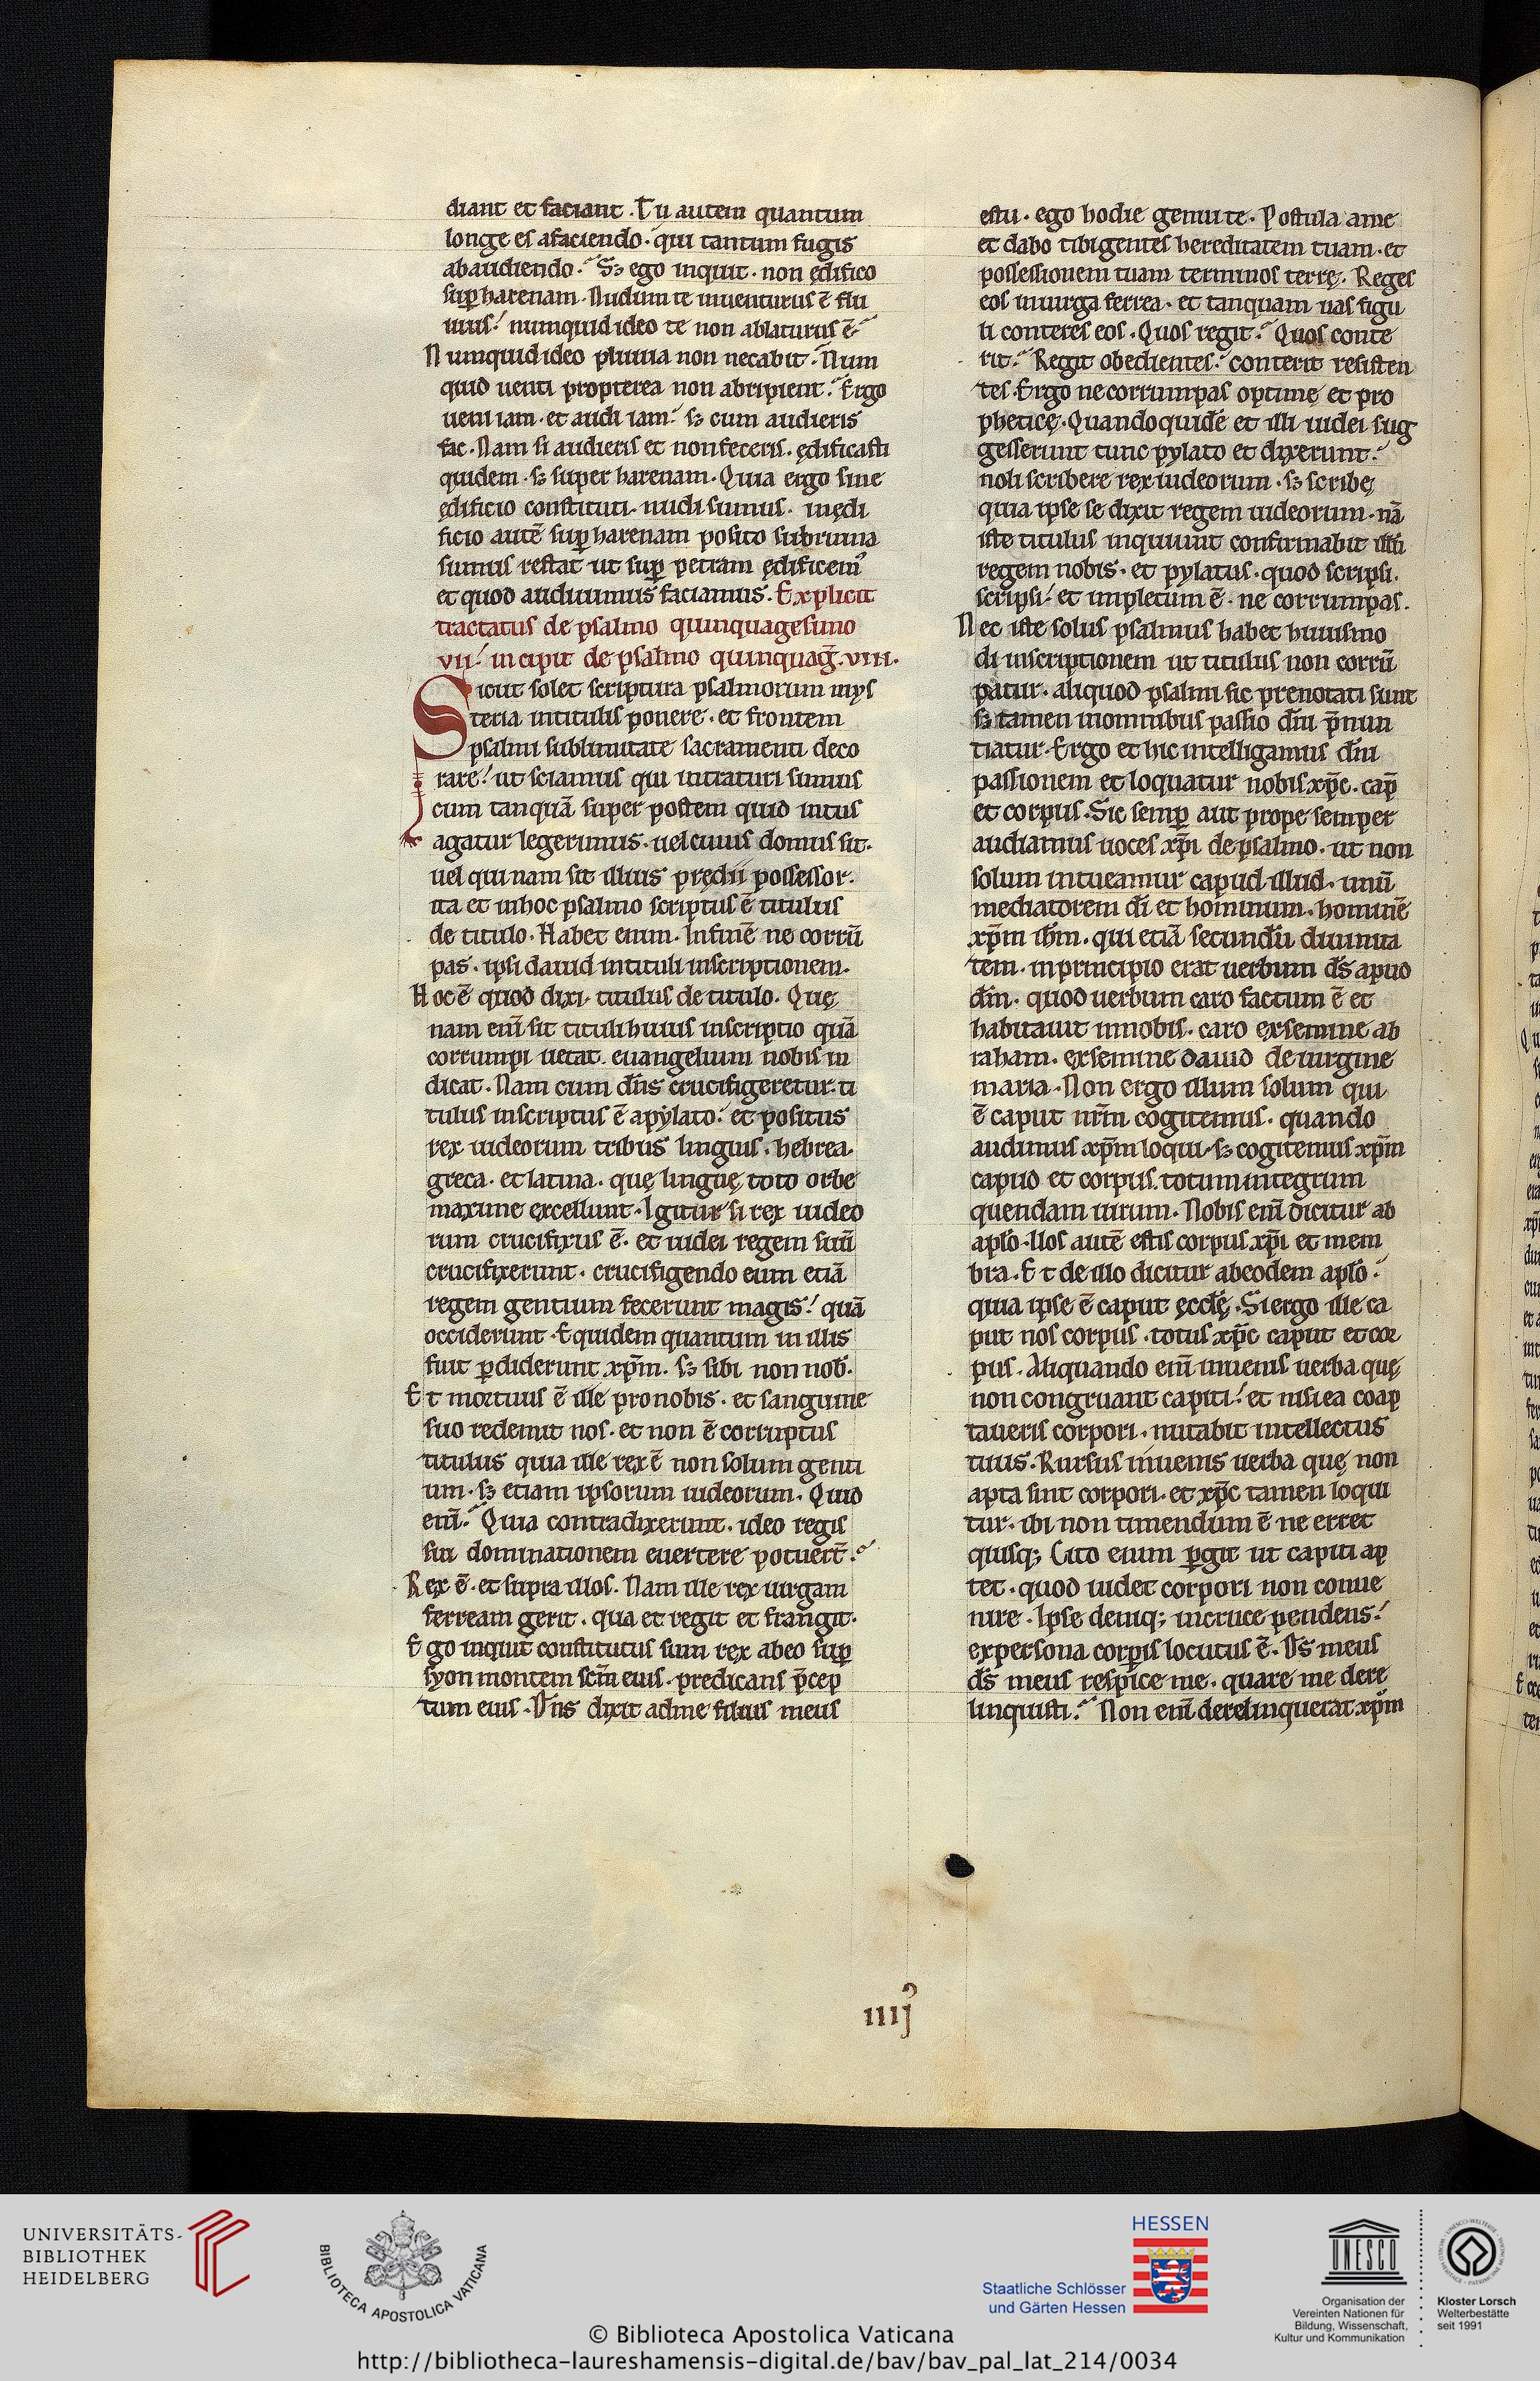 diant et faciant. Tu autem quantum
longe es afaciendo. qui tantum fugis
abaudiendo. Sꝫ ego inquit. non ędifico
suꝑ harenam. Nudum te inuenturus ē flu
uius. numquid ideo te non ablaturus ē.
Numquid ideo pluuia non necabit. Num
quid uenti propterea non abripient. Ergo
ueni iam. et audi iam. sꝫ cum audieris
fac. Nam si audieris et non feceris. ędificasti
quidem. sꝫ super harenam. Quia ergo sine
ędificio constituti. nudi sumus. inędi
ficio autē suꝑ harenam posito subruina
sumus restat ut suꝑ petram ędificemꝰ
et quod audiuimus faciamus. Explicit
tractatus de psalmo quinquagesimo
vii. incipit de psalmo quinquag̅. viii.
Sicut solet scriptura psalmorum mys
teria intitulis ponere. et frontem
psalmi sublimitate sacramenti deco
rare. ut sciamus qui intraturi sumus
cum tanquā super postem quid intus
agatur legerimus. uel cuius domus sit.
uel qui nam sit illius prędii possessor.
ita et inhoc psalmo scriptus ē titulus
de titulo. Habet enim. Infinē ne corrū
pas. ipsi dauid intituli inscriptionem.
Hoc ē quod dixi. titulus de titulo. Quę
nam eni̅ sit tituli huius inscriptio quā
corrumpi uetat. euangelium nobis in
dicat. Nam cum dn̅s crucifigeretur. ti
tulus inscriptus ē apylato. et positus
rex iudeorum tribus linguis. hebrea.
greca. et latina. quę linguę toto orbe
maxime excellunt. Igitur si rex iudeo
rum crucifixus ē. et iudei regem suū
crucifixerunt. crucifigendo eum etiā
regem gentium fecerunt magis. quā
occiderunt. Equidem quantum in illis
fuit ꝑdiderunt xp̅m. sꝫ sibi non nob̅.
Et mortuus ē ille pro nobis. et sanguine
suo redemit nos. et non ē corruptus
titulus quia ille rex ē non solum genti
um. sꝫ etiam ipsorum iudeorum. Quid
eni̅. Quia contradixerunt. ideo regis
sui dominationem euertere potuer̅t.
Rex ē. et supra illos. Nam ille rex uirgam
ferream gerit. qua et regit et frangit.
Ego inquit constitutus sum rex abeo suꝑ
syon montem scm̅ eius. predicans p̅cep
tum eius. Dn̅s dixit adme filius meus
estu. ego hodie genui te. Postula ame
et dabo tibi gentes hereditatem tuam. et
possessionem tuam terminos terrę. Reges
eos inuirga ferrea. et tanquam uas figu
li conteres eos. Quos regit. Quos conte
rit. Regit obedientes. conterit resisten
tes. Ergo ne corrumpas optimę et pro
pheticę. Quandoquidē et illi iudei sug
gesserunt tunc pylato et dixerunt.
noli scribere rex iudeorum. sꝫ scribę
quia ipse se dixit regem iudeorum. nā
iste titulus inquiunt confirmabit illū
regem nobis. et pylatus. quod scripsi.
scripsi. et impletum ē. ne corrumpas.
Nec iste solus psalmus habet huiusmo
di inscriptionem ut titulus non corrū
patur. aliquod psalmi sic prenotati sunt
sꝫ tamen inomnibus passio dn̅i p̅nun
tiatur. Ergo et hic intelligamus dn̅i
passionem et loquatur nobis xp̅c. cap̅
et corpus. Sic semꝑ aut prope semper
audiamus uoces xp̅i de psalmo. ut non
solum intueamur capud illud. unū
mediatorem di̅ et hominum. hominē
xp̅m ih̅m. qui etiā secundū diuinita
tem. inprincipio erat uerbum ds̅ apud
dm̅. quod uerbum caro factum ē et
habitauit innobis. caro exsemine ab
raham. exsemine dauid de uirgine
maria. Non ergo illum solum qui
ē caput nr̅m cogitemus. quando
audimus xp̅m loqui. sꝫ cogitemus xp̅m
capud et corpus. totum integrum
quendam uirum. Nobis eni̅ dicitur ab
apl̅o. Uos autē estis corpus xp̅i et mem
bra. Et de illo dicitur abeodem apl̅o.
quia ipse ē caput ęccl̅ę. Si ergo ille ca
put nos corpus. totus xp̅c caput et cor
pus. Aliquando eni̅ inuenis uerba quę
non congruant capiti. et nisi ea coap
taueris corpori. nutabit intellectus
tuus. Rursus inuenis uerba quę non
apta sint corpori. et xp̅c tamen loqui
tur. ibi non timendum ē ne erret
quisqꝫ Cito enim ꝑgit ut capiti ap
tet. quod uidet corpori non conue
nire. Ipse deniqꝫ incruce pendens.
expersona corꝑis locutus ē. Ds̅ meus
ds̅ meus respice me. quare me dere
linquisti. Non eni̅ derelinquerat xp̅m
iiijꝰ
UNIVERSITÄTS-
BIBLIOTHEK
HEIDELBERG
BIBLIOTECA APOSTOLICA VATICANA
HESSEN
Staatliche Schlösser
und Gärten Hessen
UNESCO
Organisation der
Vereinten Nationen für
Bildung, Wissenschaft,
Kultur und Kommunikation
Kloster Lorsch
Welterbestätte
seit 1991
© Biblioteca Apostolica Vaticana
http://bibliotheca-laureshamensis-digital.de/bav/bav_pal_lat_214/0034